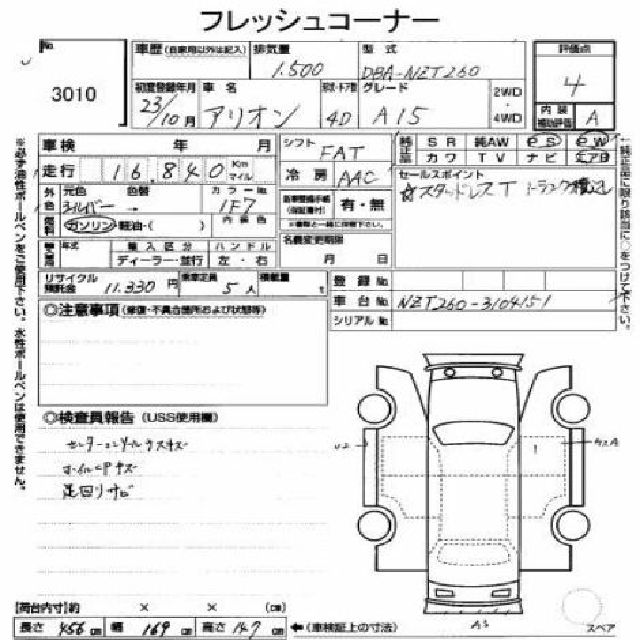 フレッシュコーナー
No.
3010
車歴 (自家用以外は記入)
排気量
1.500
型式
DBA-NZT260
評価点
4
初度登録年月
23/10月
車名
アリオン
形状・ドア数
4D
グレード
A15
2WD
4WD
内装
補助評価
A
車検 年 月
シフト
FAT
純正品
SR 純AW PS PW
カワ TV ナビ エアB
走行 16,840 Km マイル
冷房
AAC
セールスポイント
☆スタッドレスT トランク積込
外色
元色
シルバー
色替
カラーNo
1F7
有・無
燃料
ガソリン・軽油・( )
内装色
名義変更期限
月 日
輸入車
年式
輸入区分
ディーラー・並行
ハンドル
左・右
リサイクル預託金
11.330円
乗車定員
5人
積載量
kg
登録No
車台No
NZT260-3104151
シリアルNo
◎注意事項 (修復・不具合箇所および状態等)
◎検査員報告 (USS使用欄)
センターコンソールクスキズ
ホイールCPキズ
足回りサビ
U2
A2A
A3
【荷台内寸】約 × × (cm)
長さ 456cm 幅 169cm 高さ 147cm ←(車検証上の寸法)
スペア
※必ず油性ボールペンをご使用下さい。水性ボールペンは使用できません。